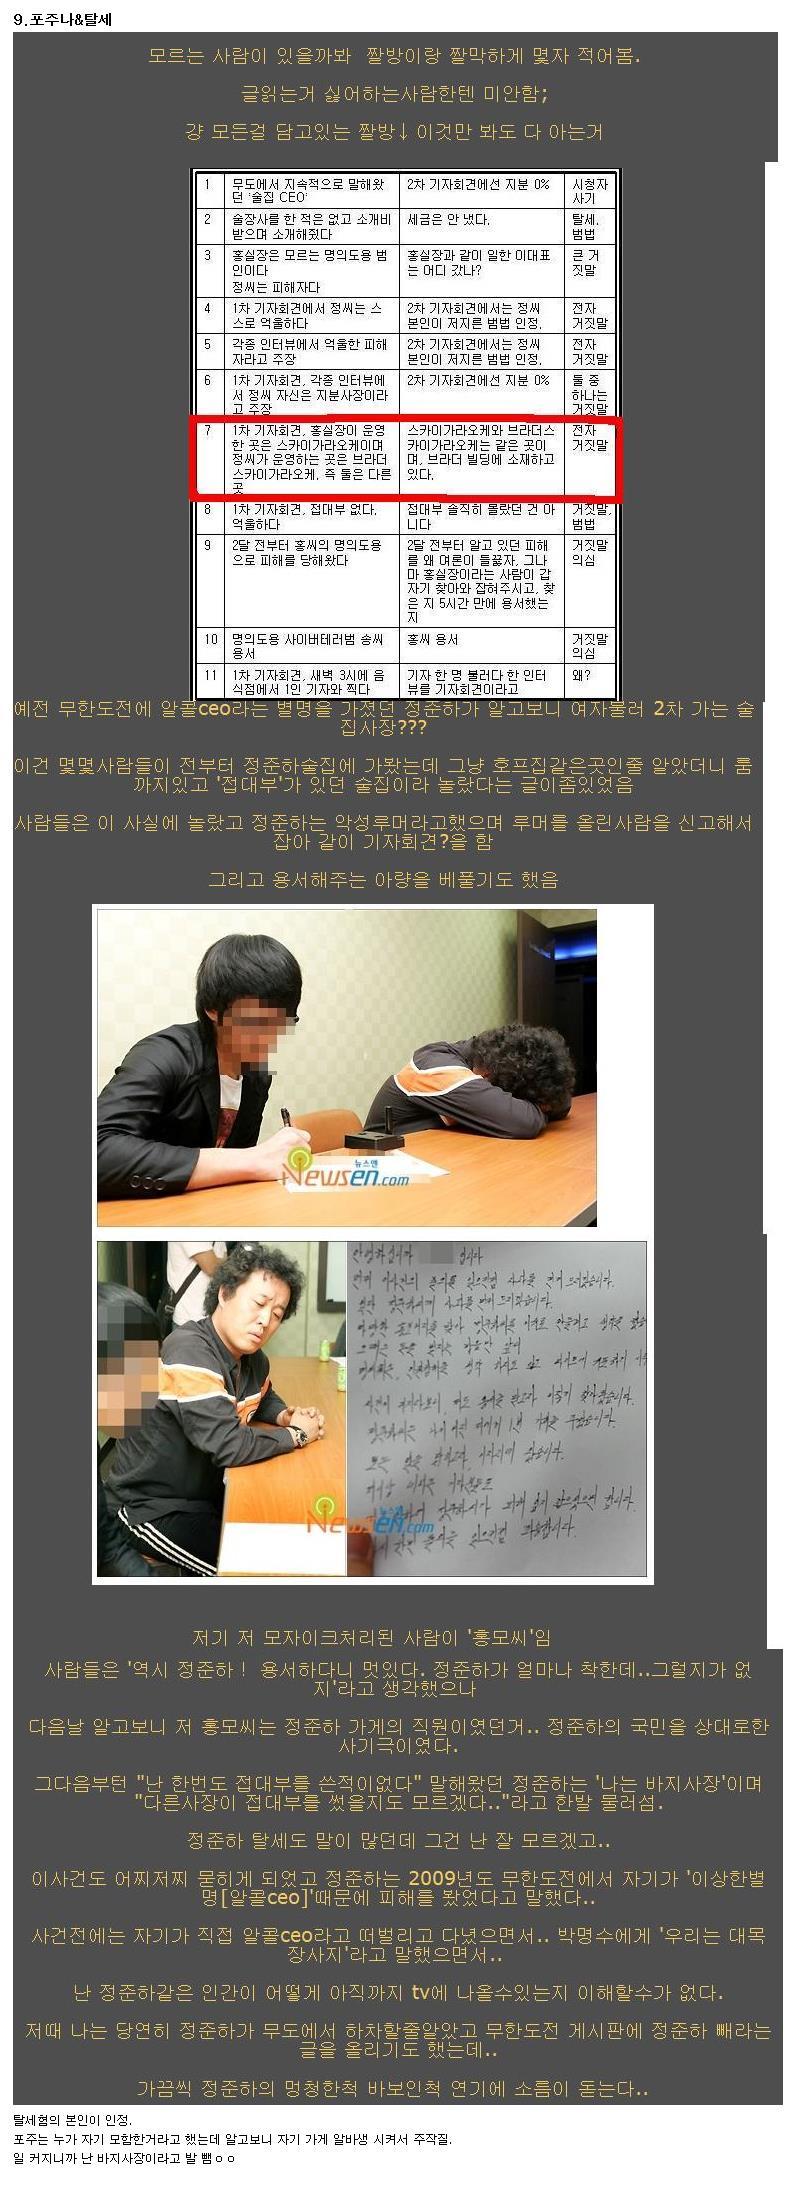 9.포주나&탈세
모르는 사람이 있을까봐 짤방이랑 짤막하게 몇자 적어봄.
글읽는거 싫어하는사람한텐 미안함;
걍 모든걸 담고있는 짤방↓ 이것만 봐도 다 아는거
1 무도에서 지속적으로 말해왔 2차 기자회견에선 지분 0% 시청자
던 '술집 CEO' 사기
2 술장사를 한 적은 없고 소개비 세금은 안 냈다. 탈세,
받으며 소개해줬다 범법
3 홍실장은 모르는 명의도용 범 홍실장과 같이 일한 이대표 큰 거
인이다 는 어디 갔나? 짓말
정씨는 피해자다
4 1차 기자회견에서 정씨는 스 2차 기자회견에서는 정씨 전자
스로 억울하다 본인이 저지른 범법 인정. 거짓말
5 각종 인터뷰에서 억울한 피해 2차 기자회견에서는 정씨 전자
자라고 주장 본인이 저지른 범법 인정. 거짓말
6 1차 기자회견, 각종 인터뷰에 2차 기자회견에선 지분 0% 둘 중
서 정씨 자신은 지분사장이라 하나는
고 주장 거짓말
7 1차 기자회견, 홍실장이 운영 스카이가라오케와 브라더스 전자
한 곳은 스카이가라오케이며 카이가라오케는 같은 곳이 거짓말
정씨가 운영하는 곳은 브라더 며, 브라더 빌딩에 소재하고
스카이가라오케. 즉 둘은 다른 있다.
곳
8 1차 기자회견, 접대부 없다. 접대부 솔직히 몰랐던 건 아 거짓말,
억울하다 니다 범법
9 2달 전부터 홍씨의 명의도용 2달 전부터 알고 있던 피해 거짓말
으로 피해를 당해왔다 를 왜 여론이 들끓자, 그나 의심
마 홍실장이라는 사람이 갑
자기 찾아와 잡혀주시고, 찾
은 지 5시간 만에 용서했는
지
10 명의도용 사이버테러범 송씨 홍씨 용서 거짓말
용서 의심
11 1차 기자회견, 새벽 3시에 음 기자 한 명 불러다 한 인터 왜?
식점에서 1인 기자와 찍다 뷰를 기자회견이라고
예전 무한도전에 알콜ceo라는 별명을 가졌던 정준하가 알고보니 여자불러 2차 가는 술
집사장???
이건 몇몇사람들이 전부터 정준하술집에 가봤는데 그냥 호프집같은곳인줄 알았더니 룸
까지있고 '접대부'가 있던 술집이라 놀랐다는 글이좀있었음
사람들은 이 사실에 놀랐고 정준하는 악성루머라고했으며 루머를 올린사람을 신고해서
잡아 같이 기자회견?을 함
그리고 용서해주는 아량을 베풀기도 했음
뉴스엔
Newsen.com
뉴스엔
Newsen.com
저기 저 모자이크처리된 사람이 '홍모씨'임
사람들은 '역시 정준하! 용서하다니 멋있다. 정준하가 얼마나 착한데..그럴지가 없
지'라고 생각했으나
다음날 알고보니 저 홍모씨는 정준하 가게의 직원이였던거.. 정준하의 국민을 상대로한
사기극이였다.
그다음부턴 "난 한번도 접대부를 쓴적이없다" 말해왔던 정준하는 '나는 바지사장'이며
"다른사장이 접대부를 썼을지도 모르겠다.."라고 한발 물러섬.
정준하 탈세도 말이 많던데 그건 난 잘 모르겠고..
이사건도 어찌저찌 묻히게 되었고 정준하는 2009년도 무한도전에서 자기가 '이상한별
명[알콜ceo]'때문에 피해를 봤었다고 말했다..
사건전에는 자기가 직접 알콜ceo라고 떠벌리고 다녔으면서.. 박명수에게 '우리는 대목
장사지'라고 말했으면서..
난 정준하같은 인간이 어떻게 아직까지 tv에 나올수있는지 이해할수가 없다.
저때 나는 당연히 정준하가 무도에서 하차할줄알았고 무한도전 게시판에 정준하 빼라는
글을 올리기도 했는데..
가끔씩 정준하의 멍청한척 바보인척 연기에 소름이 돋는다..
탈세혐의 본인이 인정.
포주는 누가 자기 모함한거라고 했는데 알고보니 자기 가게 알바생 시켜서 주작질.
일 커지니까 난 바지사장이라고 발 뺌ㅇㅇ